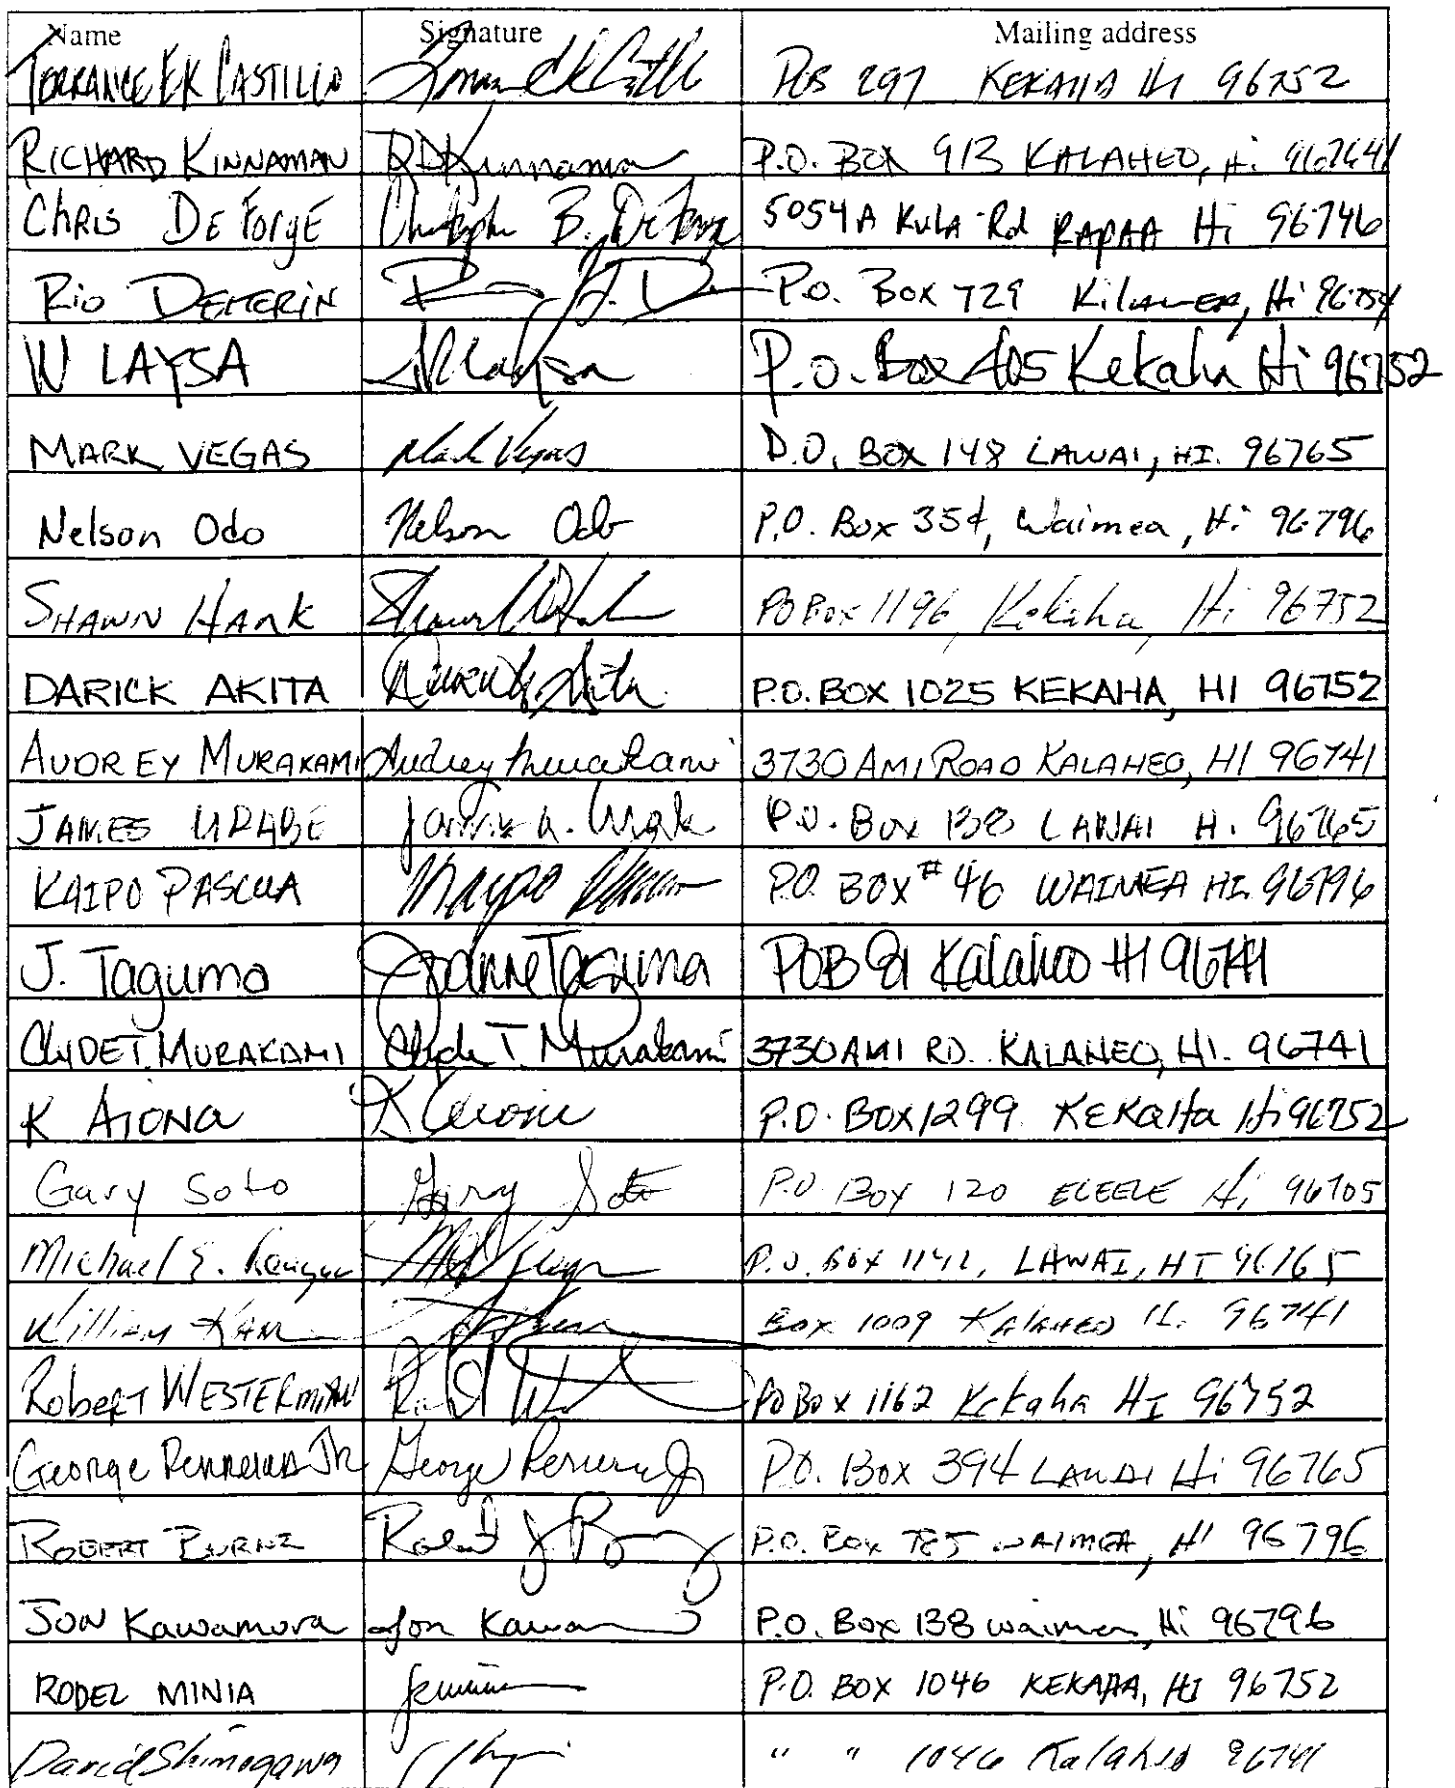 Name Signature Mailing address
TORRANCE EK CASTILLO POB 297 KEKAHA HI 96752
RICHARD KINNAMAN RDKinnaman P.O. BOX 913 KALAHEO, Hi
CHRIS DE FORGE Christopher B. DeForge 5054A KULA Rd KAPAA Hi 96746
Rio DEMERIN P.O. Box 729 Kilauea, Hi 96754
W LAYSA P.O. Box 405 Kekaha Hi 96752
MARK VEGAS Mark Vegas P.O. BOX 148 LAWAI, HI. 96765
Nelson Odo Nelson Odo P.O. Box 354, Waimea, Hi 96796
SHAWN HANK PO Box 1196, Kekaha, Hi 96752
DARICK AKITA P.O. BOX 1025 KEKAHA, HI 96752
AUDREY MURAKAMI Audrey Murakami 3730 AMI ROAD KALAHEO, HI 96741
JAMES URABE P.O. Box 138 LAWAI Hi 96765
KAIPO PASCUA P.O. BOX # 46 WAIMEA HI 96796
J. Taguma Joanne Taguma POB 81 Kalaheo HI 96741
CLYDE T. MURAKAMI Clyde T. Murakami 3730 AMI RD. KALAHEO, HI. 96741
K AIONA K Aiona P.O. BOX 1299 KEKAHA Hi 96752
Gary Soto Gary Soto P.O. Box 120 ELEELE Hi 96705
Michael E. P.O. Box 1142, LAWAI, HI 96765
William KAM Box 1009 KALAHEO 96741
Robert WESTERMAN PO Box 1162 Kekaha HI 96752
George Jr George Jr P.O. Box 394 LAWAI Hi 96765
ROBERT P.O. Box 785 WAIMEA, HI 96796
JON Kawamura Jon P.O. Box 138 Waimea, Hi 96796
RODEL MINIA P.O. BOX 1046 KEKAHA, HI 96752
David Shimogawa " " 1046 Kalaheo 96741